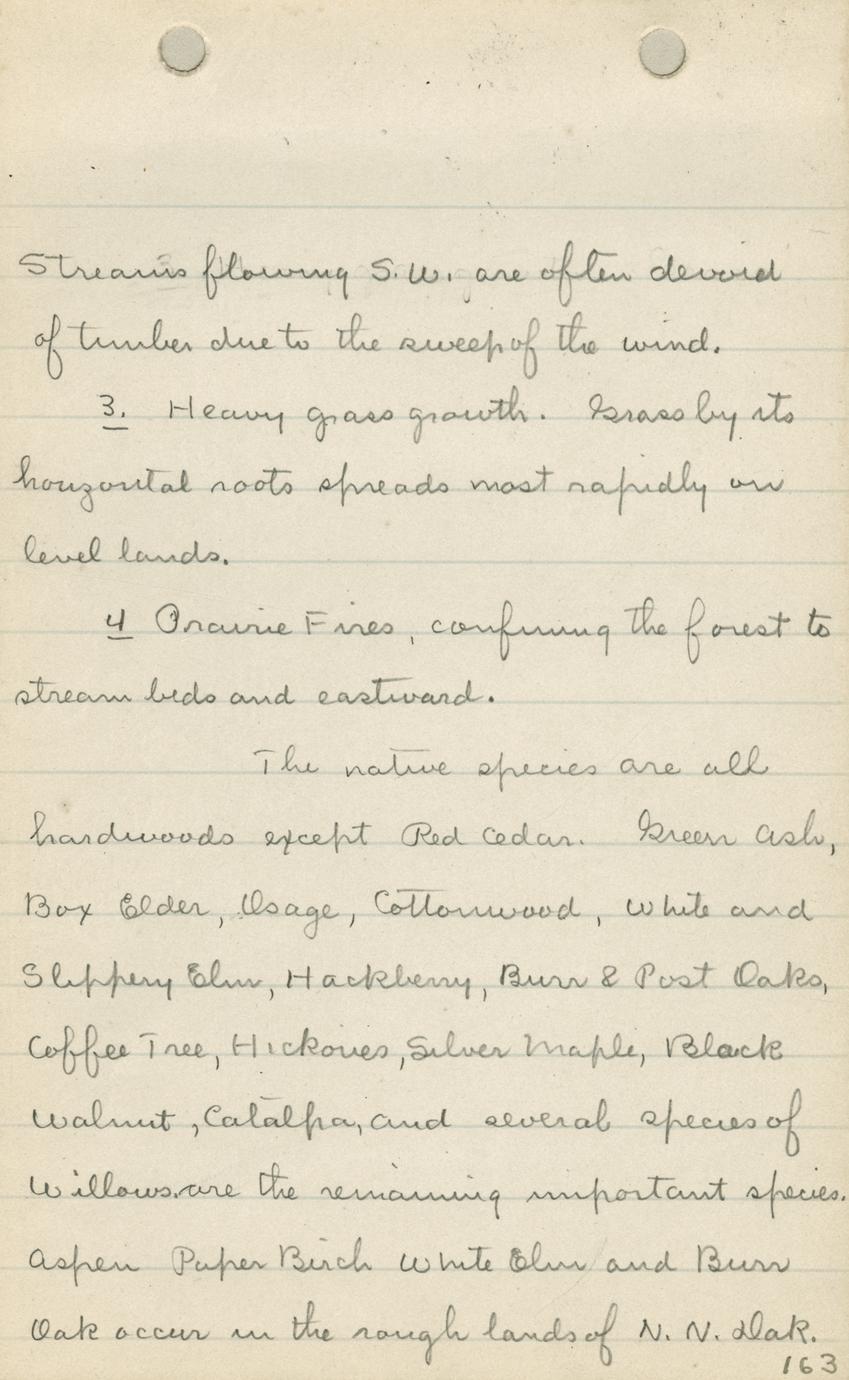 Streams flowing S.W. are often devoid
of timber due to the sweep of the wind.
3. Heavy grass growth. Grass by its
horizontal roots spreads most rapidly on
level lands.
4 Prairie Fires, confining the forest to
stream beds and eastward.
The native species are all
hardwoods except Red Cedar. Green Ash,
Box Elder, Osage, Cottonwood, White and
Slippery Elm, Hackberry, Burr & Post Oaks,
Coffee Tree, Hickories, Silver Maple, Black
Walnut, Catalpa, and several species of
Willows are the remaining important species.
Aspen Paper Birch White Elm and Burr
Oak occur in the rough lands of N. N. Dak.
163